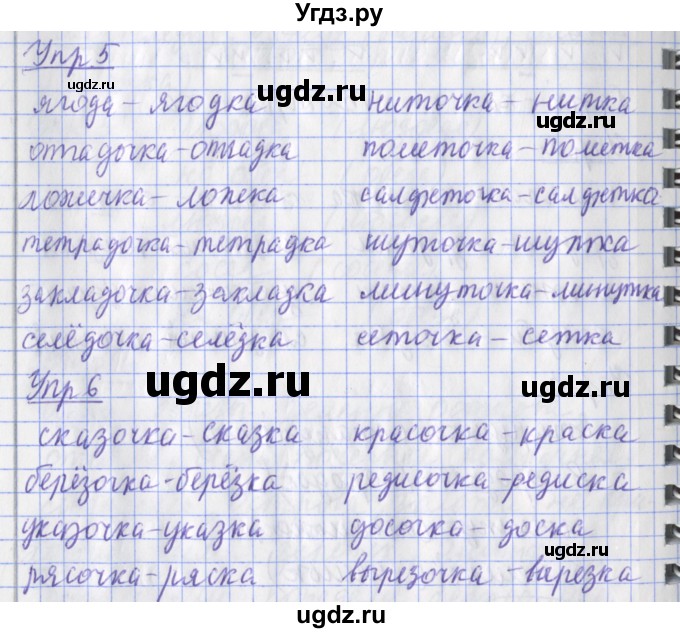 Угдз.ру
Упр 5
ugdz.ru
ягода – ягодка ugdz.ru ниточка – нитка
ugdz.ru
отгадочка – отгадка пометочка – пометка
ложечка – ложка салфеточка – салфетка
ugdz.ru
тетрадочка – тетрадка шуточка – шутка
закладочка – закладка минуточка – минутка
селёдочка – селёдка сеточка – сетка
ugdz.ru
Упр 6
ugdz.ru
сказочка – сказка красочка – краска
берёзочка – берёзка редисочка – редиска
ugdz.ru
указочка – указка досочка – доска
ugdz.ru
рясочка – ряска вырезочка – вырезка
ugdz.ru
ugdz.ru